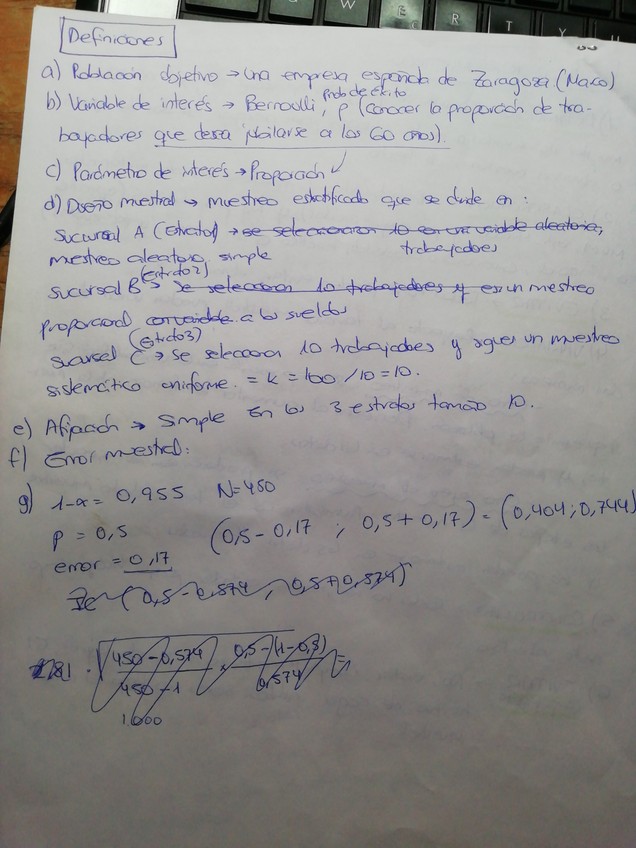 W E R T Y U
Definiciones
a) Población objetivo → Una empresa española de Zaragoza (Maco)
prob de éxito
b) Variable de interés → Bernoulli, p (conocer la proporción de tra-
bajadores que desea jubilarse a los 60 años).
c) Parámetro de interés → Proporción ✓
d) Diseño muestral → muestreo estratificado que se divide en :
sucursal A (Estrato1) → se seleccionaron 10 con una variable aleatoria,
trabajadores
muestreo aleatorio simple
(Estrato2)
sucursal B → se seleccionan 10 trabajadores y es un mestreo
proporcional a los sueldos
(Estrato3)
sucursal C → se selecciona 10 trabajadores y sigues un muestreo
sistemático uniforme. = K = 100 /10 = 10.
e) Afijación → Simple En los 3 estratos tamaño 10.
f) Error muestral:
g) 1-α = 0,955 N=450
p = 0,5 (0,5 - 0,17 ; 0,5 + 0,17) = (0,404 ; 0,744)
error = 0,17
Ic (0,5 - 0,574 , 0,5 + 0,574)
450 - 0,574 . 0,5 - (1 - 0,5) =
450 - 1 0,574
1.000